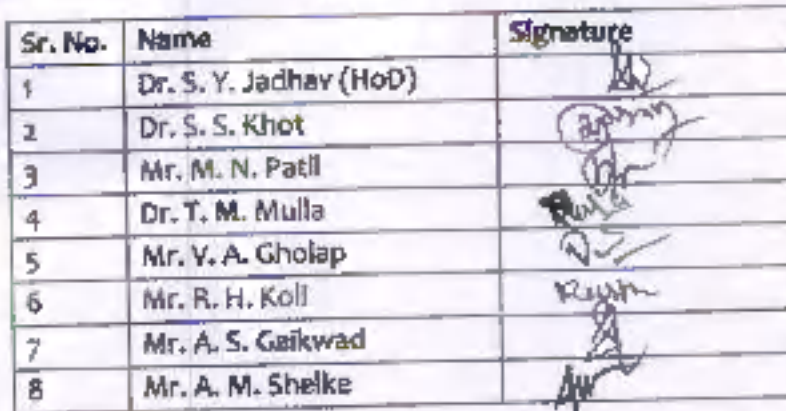 Sr. No. Name Signature
1 Dr. S. Y. Jadhav (HoD)
2 Dr. S. S. Khot
3 Mr. M. N. Patil
4 Dr. T. M. Mulla
5 Mr. V. A. Gholap
6 Mr. R. H. Koli
7 Mr. A. S. Gaikwad
8 Mr. A. M. Shelke